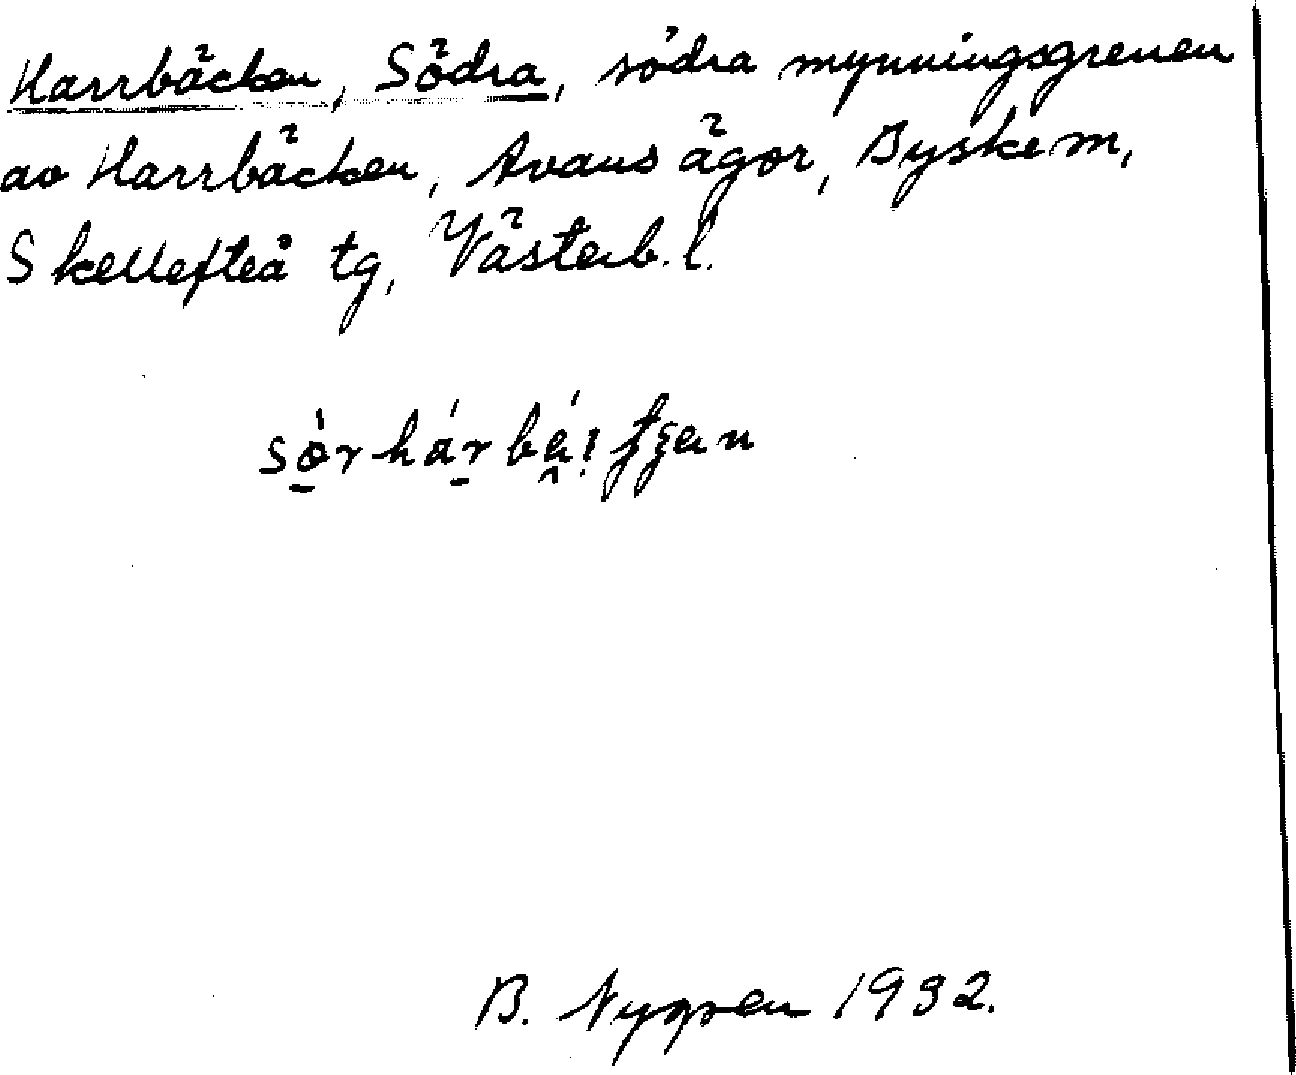 Harrbäcken, Södra, södra mynningsgrenen
av Harrbäcken, Avans ägor, Byske m,
Skellefteå tg, Västerb. l.
B. Nygren 1932.